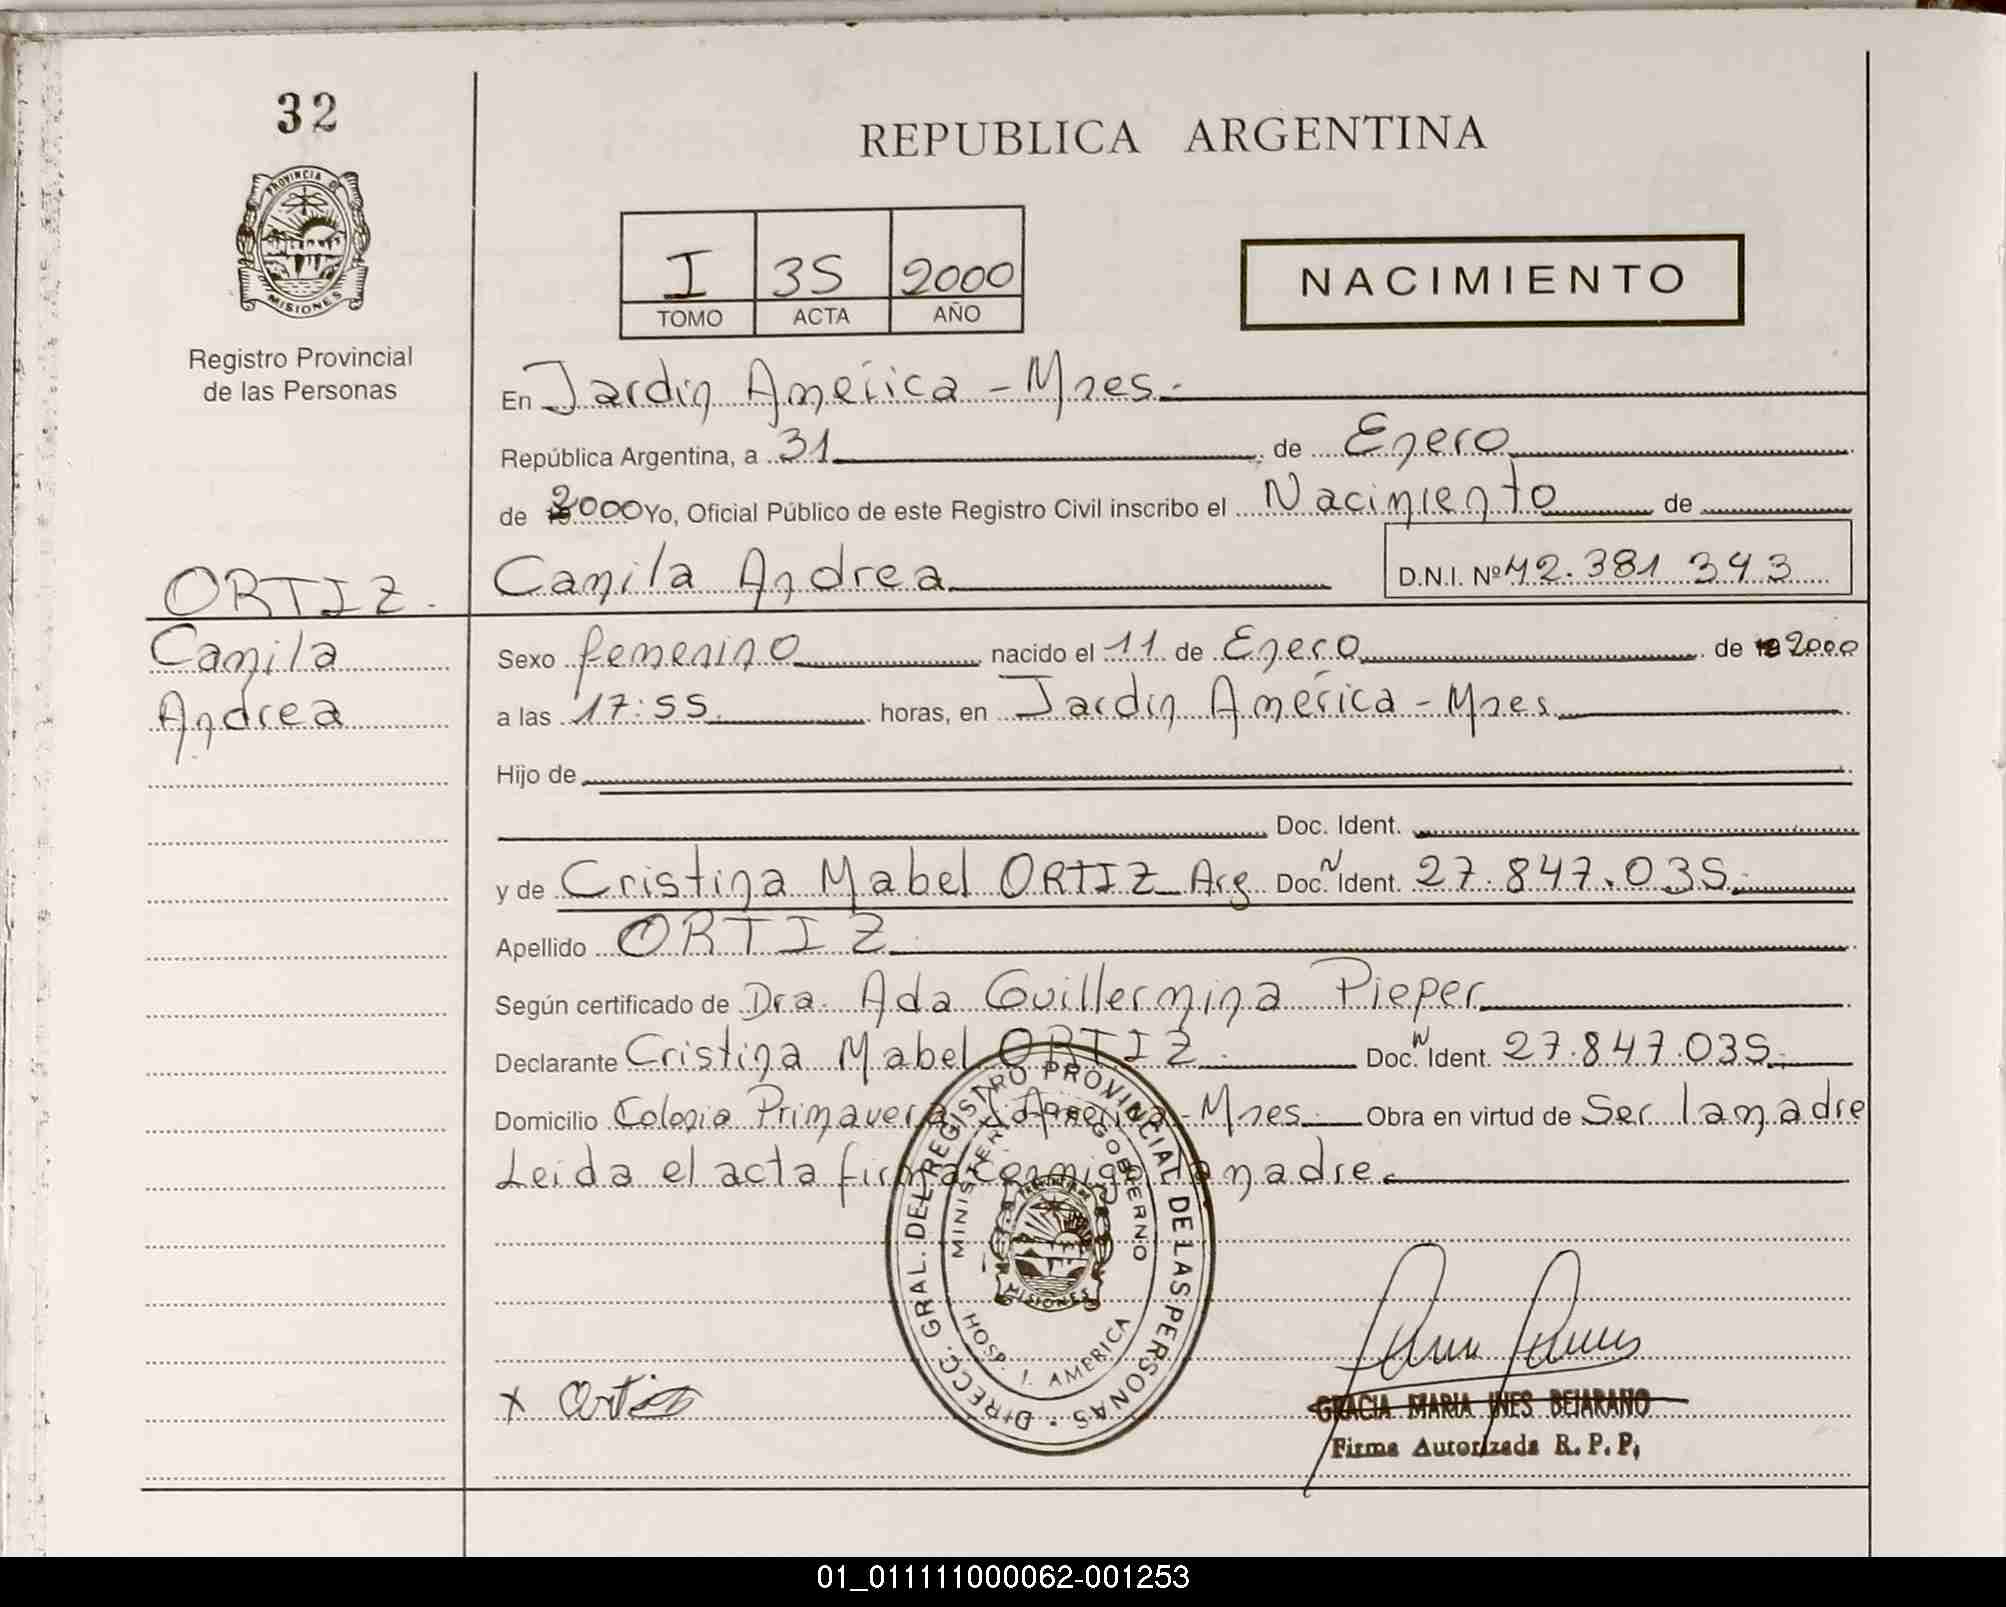 32
REPUBLICA ARGENTINA
PROVINCIA DE
MISIONES
Registro Provincial
de las Personas
I 35 2000
TOMO ACTA AÑO
NACIMIENTO
En Jardin América - Mnes.
República Argentina, a 31 de Enero
de 2000 Yo, Oficial Público de este Registro Civil inscribo el Nacimiento de
Camila Andrea D.N.I. Nº 42.381 343
ORTIZ.
Camila
Andrea
Sexo femenino nacido el 11 de Enero de 2000
a las 17:55 horas, en Jardin América - Mnes
Hijo de
Doc. Ident.
y de Cristina Mabel ORTIZ Arg Doc. N Ident. 27.847.035.
Apellido ORTIZ
Según certificado de Dra. Ada Guillermina Pieper
Declarante Cristina Mabel ORTIZ. Doc. N Ident. 27.847.035.
Domicilio Colonia Primavera J. América - Mnes. Obra en virtud de Ser la madre
Leida el acta firma conmigo la madre.
DIRECC. GRAL. DEL REGISTRO PROVINCIAL DE LAS PERSONAS
MINISTERIO DE GOBIERNO
MISIONES
HOSP. J. AMERICA
x Ortiz
GRACIA MARIA INES BEJARANO
Firma Autorizada R. P. P.
01_011111000062-001253